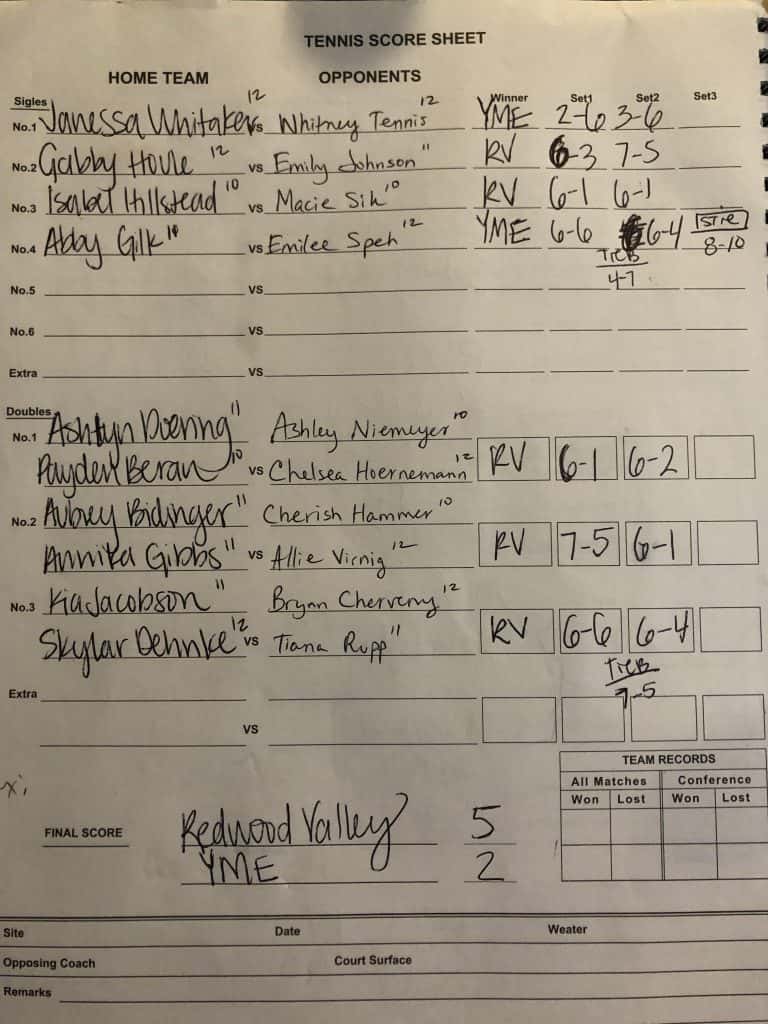 TENNIS SCORE SHEET
HOME TEAM OPPONENTS
Sigles Winner Set1 Set2 Set3
No.1 Janessa Whitaker 12 vs Whitney Tennis 12 YME 2-6 3-6
No.2 Gabby Houle 12 vs Emily Johnson 11 RV 6-3 7-5
No.3 Isabel Hillstead 10 vs Macie Sik 10 RV 6-1 6-1
No.4 Abby Gilk 10 vs Emilee Speh 12 YME 6-6 6-4 STie
TieB 8-10
4-7
No.5 vs
No.6 vs
Extra vs
Doubles
No.1 Ashtyn Doering 11 Ashley Niemeyer 10
Payden Beran 10 vs Chelsea Hoernemann 12 RV 6-1 6-2
No.2 Aubrey Bidinger 11 Cherish Hammer 10
Annika Gibbs 11 vs Allie Virnig 12 RV 7-5 6-1
No.3 Kia Jacobson 11 Brynn Cherveny 12
Skylar Dehnke 12 vs Tiana Rupp 11 RV 6-6 6-4
TieB
7-5
Extra
vs
TEAM RECORDS
All Matches Conference
Won Lost Won Lost
FINAL SCORE Redwood Valley 5
YME 2
Site Date Weater
Opposing Coach Court Surface
Remarks